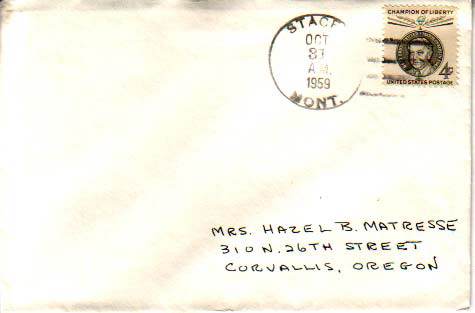 STACEY
OCT
31
A.M.
1959
MONT.
CHAMPION OF LIBERTY
4¢
UNITED STATES POSTAGE
MRS. HAZEL B. MATRESSE
310 N. 26TH STREET
CORVALLIS, OREGON